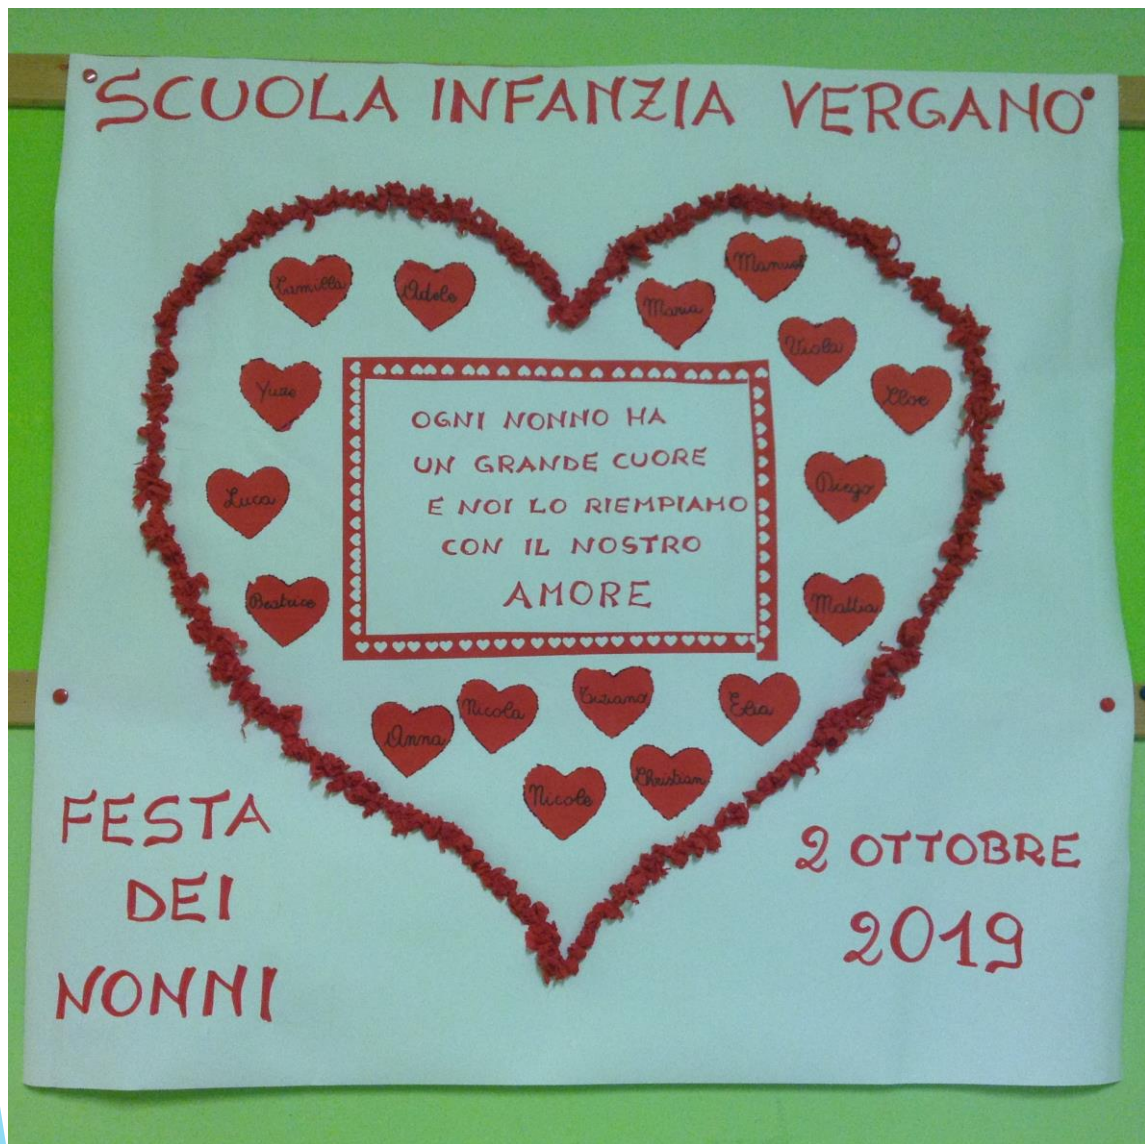 SCUOLA INFANZIA VERGANO
Camilla
Adele
Maria
Manuel
Viola
Cloe
Luca
Diego
Beatrice
Mattia
OGNI NONNO HA
UN GRANDE CUORE
E NOI LO RIEMPIAMO
CON IL NOSTRO
AMORE
Anna
Nicola
Tiziano
Elia
Nicole
Christian
FESTA
DEI
NONNI
2 OTTOBRE
2019